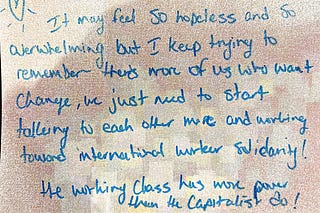 It may feel so hopeless and so
overwhelming but I keep trying to
remember theres more of us who want
change, we just need to start
talking to each other more and working
toward international worker solidarity!
The working class has more power
than the Capitalist do!